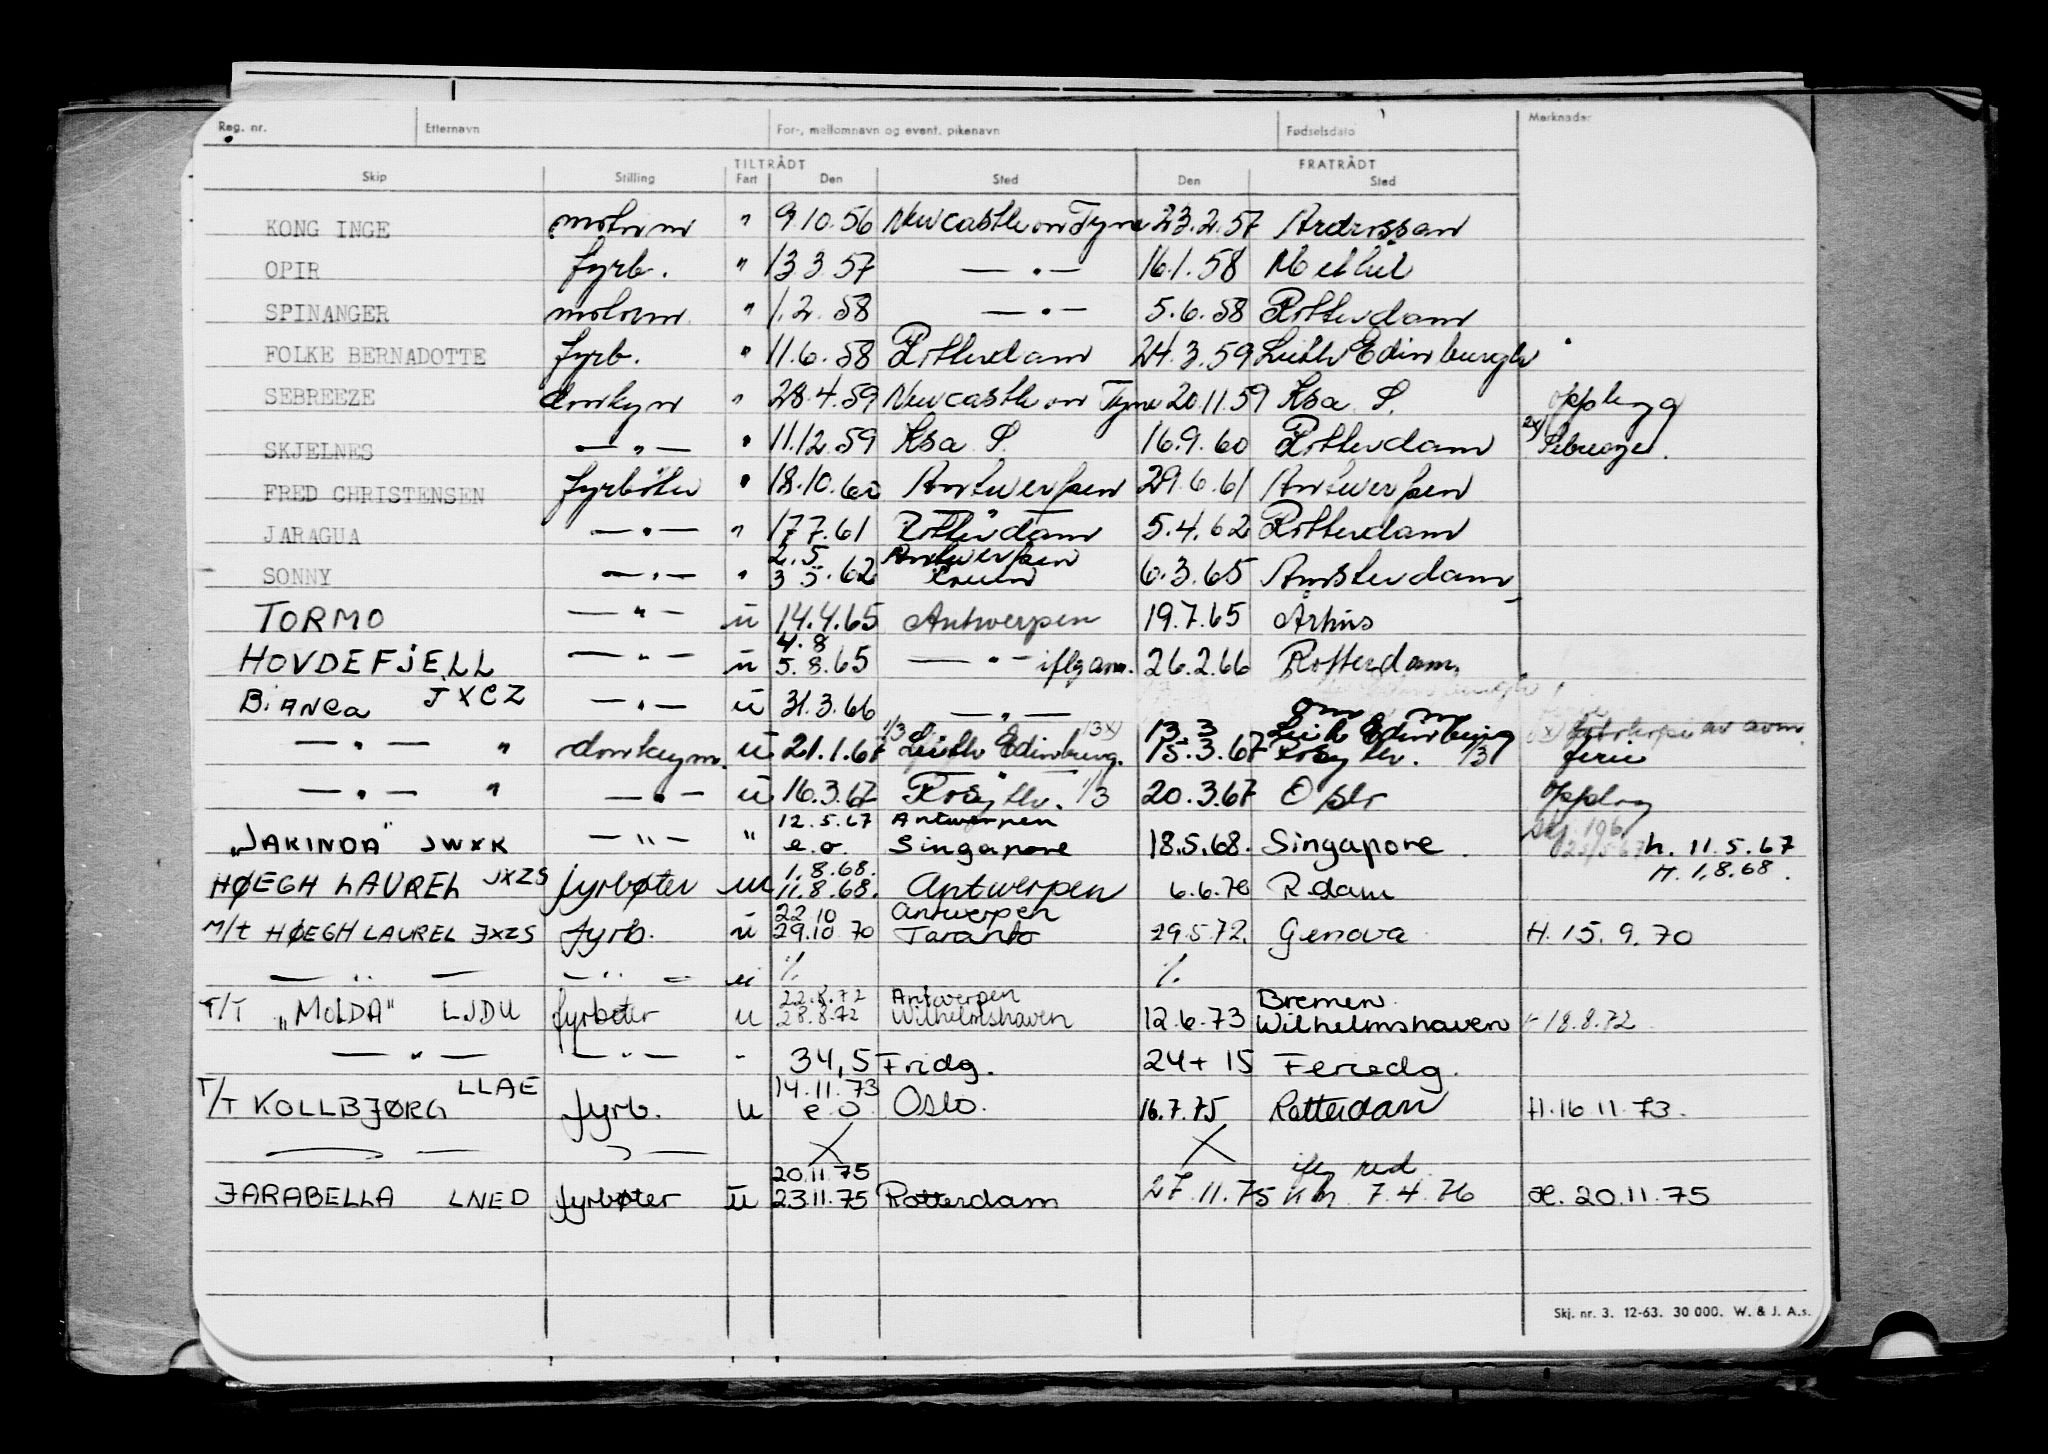 Reg. nr. Etternavn For-, mellomnavn og event. pikenavn Fødselsdato Merknader
TILTRÅDT FRATRÅDT
Skip Stilling Fart Den Sted Den Sted
KONG INGE motorm " 9.10.56 Newcastle on Tyne 23.2.57 Ardrossan
OPIR fyrb. " 13 3 57 — " — 16.1.58 Methil
SPINANGER motorm " 1.2.58 — " — 5.6.58 Rotterdam
FOLKE BERNADOTTE fyrb. " 11.6.58 Rotterdam 24.3.59 Leith Edinburgh
SEBREEZE donkym " 28.4.59 Newcastle on Tyne 20.11.59 Ksa S. opplegg
SKJELNES — " — " 11.12.59 Ksa S. 16.9.60 Rotterdam
FRED CHRISTENSEN fyrbøter " 18.10.60 Antwerpen 29.6.61 Antwerpen
JARAGUA — " — " 17 7.61 Rotterdam 5.4.62 Rotterdam
2.5 Antwerpen
SONNY — " — " 3 5.62 6.3.65 Amsterdam
TORMO — " — u 14.4.65 Antwerpen 19.7.65 Århus
4.8
HOVDEFJELL — " — u 5.8.65 — " — iflg am. 26.2.66 Rotterdam.
BiANCa JXCZ — " — u 31.3.66 — " —
13.3 Leith Edinburg
— " — " donkeym. u 21.1.67 1/3 Leith Edinburg. 13x) 15.3.67 Rosyth. 1/3 ferie
— " — " — " — u 16.3.67 Rosyth. 1/3 20.3.67 Oslo opplag
12.5.67 Antwerpen
"JAKINDA" JWXK — " — " e.o. Singapore 18.5.68. Singapore. h. 11.5.67
1.8.68. H. 1.8.68.
HØEGH LAUREL JXZS fyrbøter u 11.8.68. Antwerpen 6.6.70 R.dam
22 10 Antwerpen
M/t HØEGH LAUREL JXZS fyrb. u 29.10 70 Taranto 29.5.72. Genova H. 15.9.70
— " — — " — u % %
22.8.72 Antwerpen Bremen
T/T "MOLDA" LJDU fyrbøter u 28.8.72 Wilhelmshaven 12.6.73 Wilhelmshaven 18.8.72
— " — — " — " 34,5 Fridg. 24 + 15 Feriedg.
LLAE 14.11.73
T/T KOLLBJØRG fyrb. u e o Oslo. 16.7.75 Rotterdam H. 16 11.73.
X X
20.11.75 iflg red
JARABELLA LNED fyrbøter u 23.11.75 Rotterdam 27.11.75 7.4.76 H. 20.11.75
Skj. nr. 3. 12-63. 30 000. W. & J. A.s.